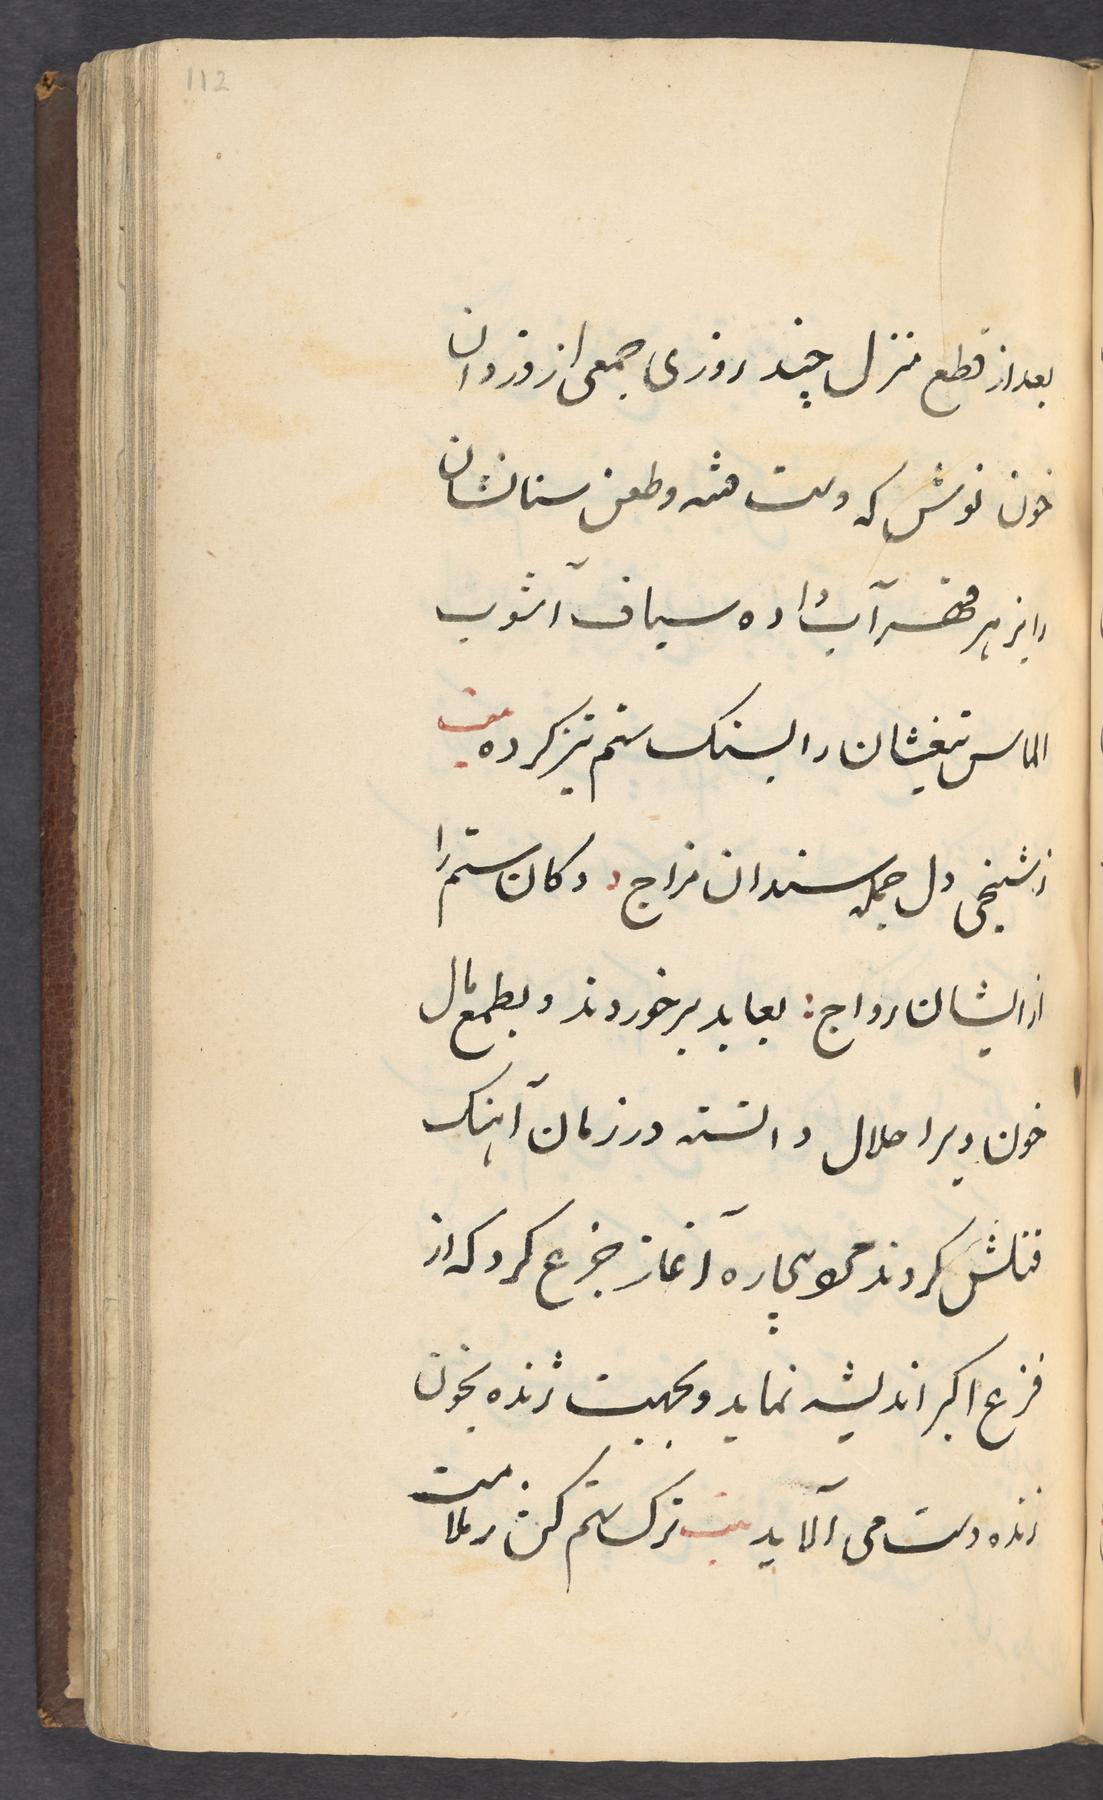 112
بعد از قطع منزل چند روزی جمعی از دزدان
خون نوش که دست فتنه و طعن سنانشان
را بزهر قهر آب داده سیاف آشوب
الماس تیغشان را بسنک ستم تیز کرده بیت
ز شیخی دل جمله سندان مزاج دکان ستم را
از ایشان رواج : بعابد برخوردند و بطمع مال
خون ویرا حلال دانسته در زمان آهنک
قتلش کردند بیچاره آغاز جزع کرد که از
فزع اکبر اندیشه نماید و بجهت ژنده بخون
زنده دست می آلاید بیت ترک ستم کن ز ملامت